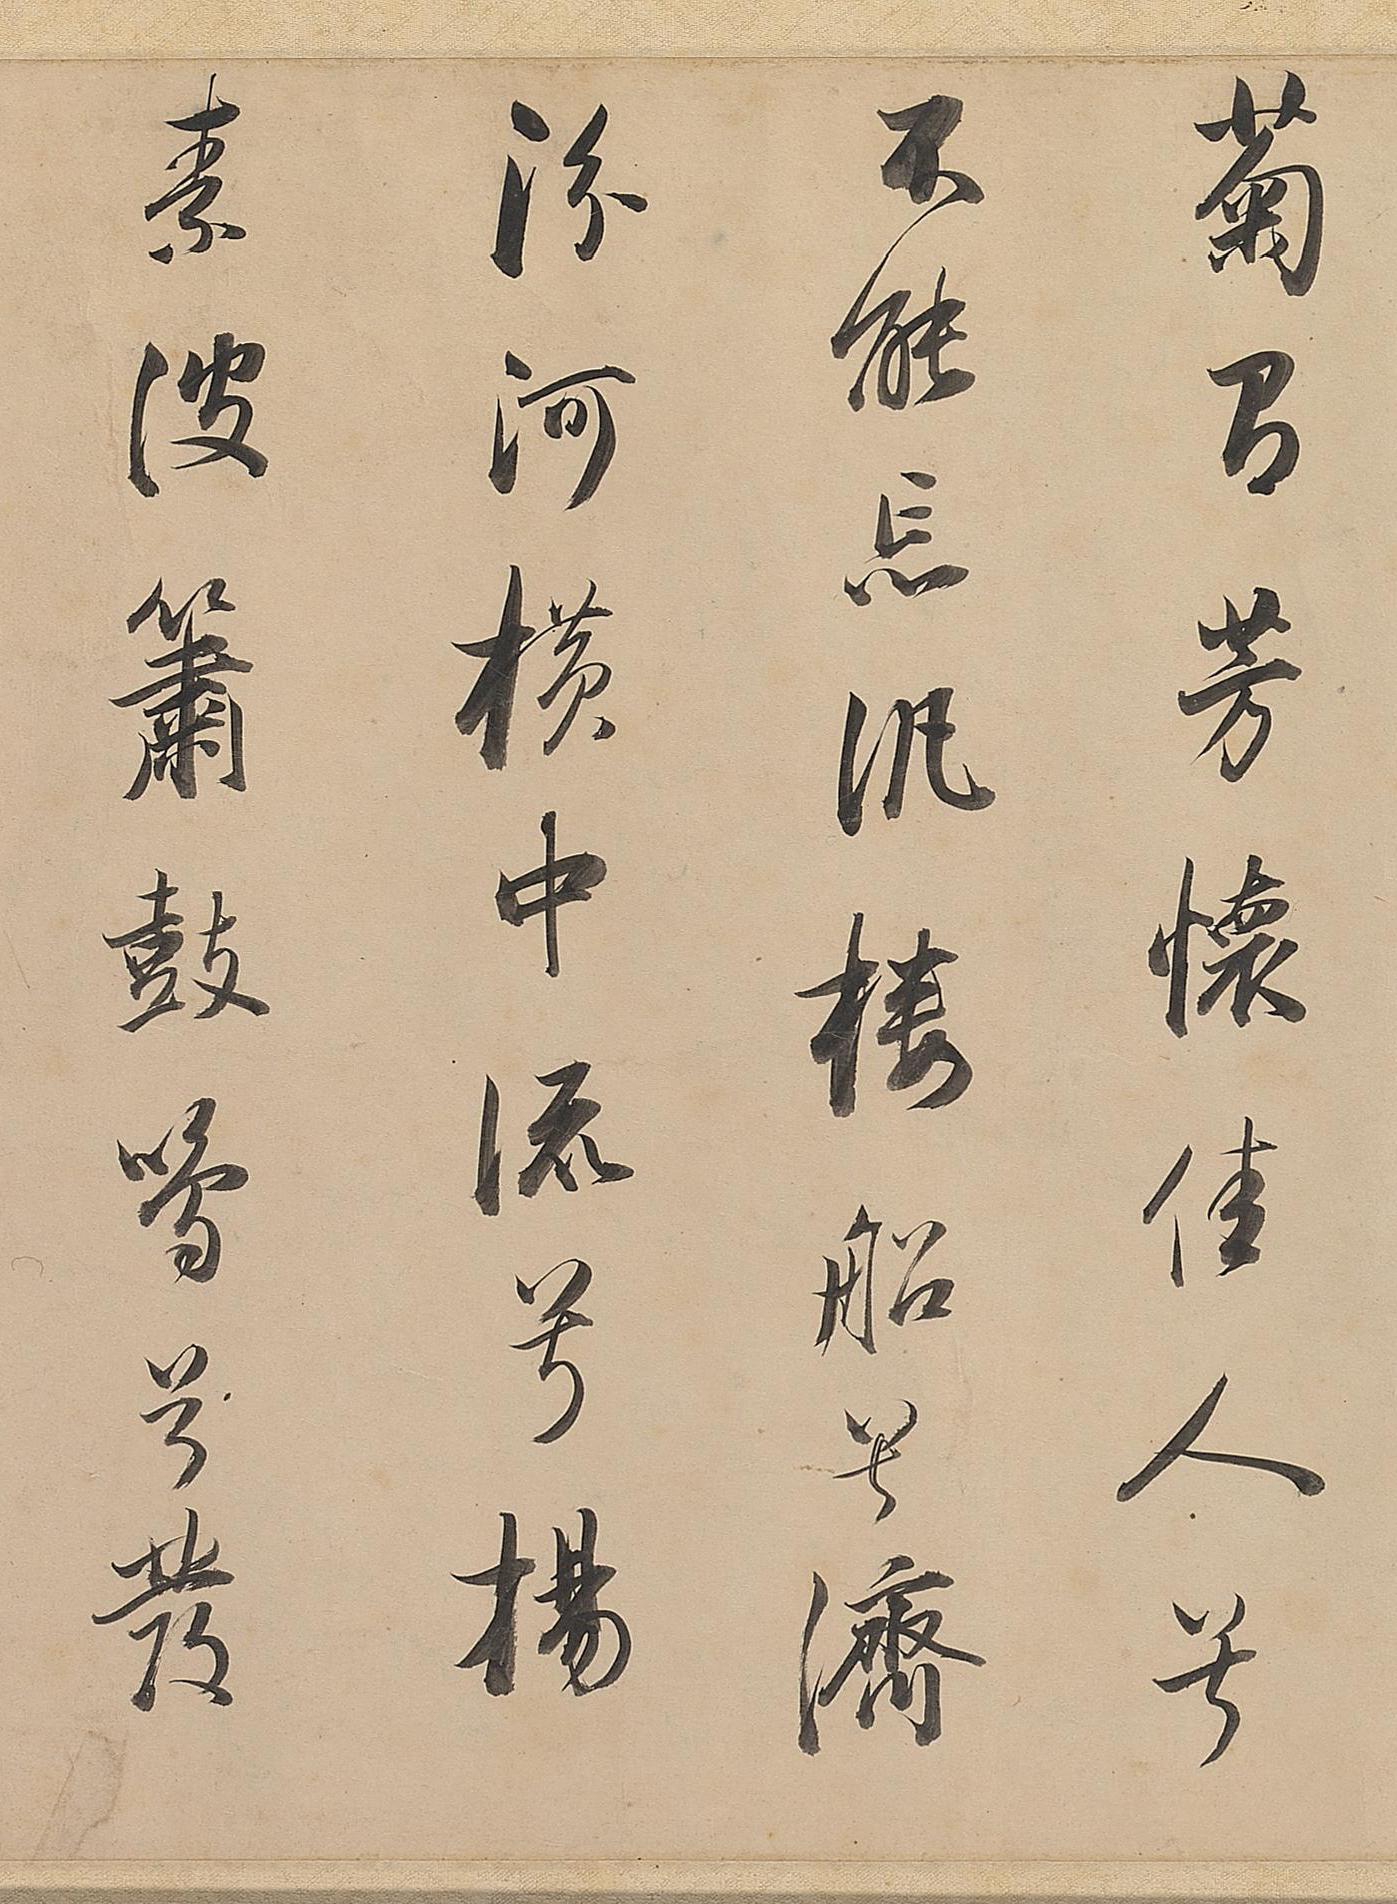 菊有芳懷佳人兮
不能忘汎樓船兮濟
汾河橫中流兮揚
素波簫鼓鳴兮發